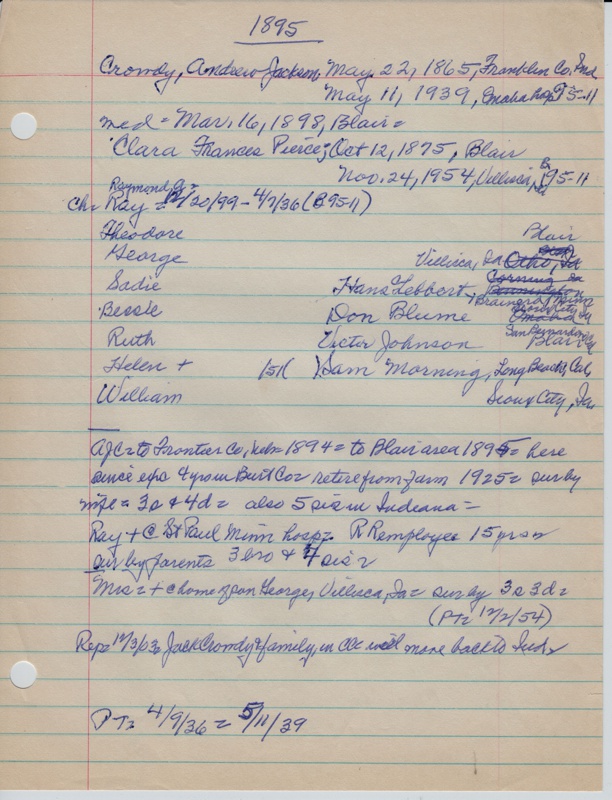 1895
Crowdy, Andrew Jackson, May 22, 1865, Franklin Co. Ind
May 11, 1939, Omaha hosp. 5-11
med = Mar. 16, 1898, Blair =
Clara Frances Pierce; Oct 12, 1875, Blair
Nov. 24, 1954, Villisca, 95-11
Raymond A =
Ch: Ray = 12/20/99 - 4/7/36 (B95-11)
Theodore Blair
George Villisca, Ia Otho, Ia
Corning Ia
Sadie Hans Gebbert,
Brainerd, Minn
Bessie Don Blume Omaha
San Bernardino
Ruth Victor Johnson Blair
Helen + 1st ( ) Sam Morning, Long Beach, Cal,
William Sioux City, Ia.
AJC = to Frontier Co, Nebr 1894 = to Blair area 1895 = here
since exc 4 yrs in Burt Co = retire from farm 1925 = sur by
wife = 3s & 4d = also 5 sis in Indiana =
Ray + @ St Paul Minn hosp = RR employee 15 yrs =
sur by parents 3 bro & 4 sis =
Mrs = + @ home of son George, Villisca, Ia = sur by 3s 3d =
(PT = 12/2/54)
Rep = 12/3/03 = Jack Crowdy & family, in will move back to Ind =
PT = 4/9/36 = 5/11/39